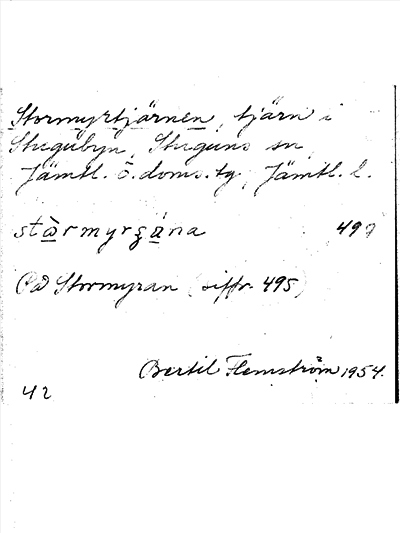 Stormyrtjärnen, tjärn i
Stugubyn, Stuguns sn,
Jämtl. ö. doms. tg, Jämtl. l.
stårmyrgána
På Stormyran (siffr. 495)
Bertil Flemström 1954.
42